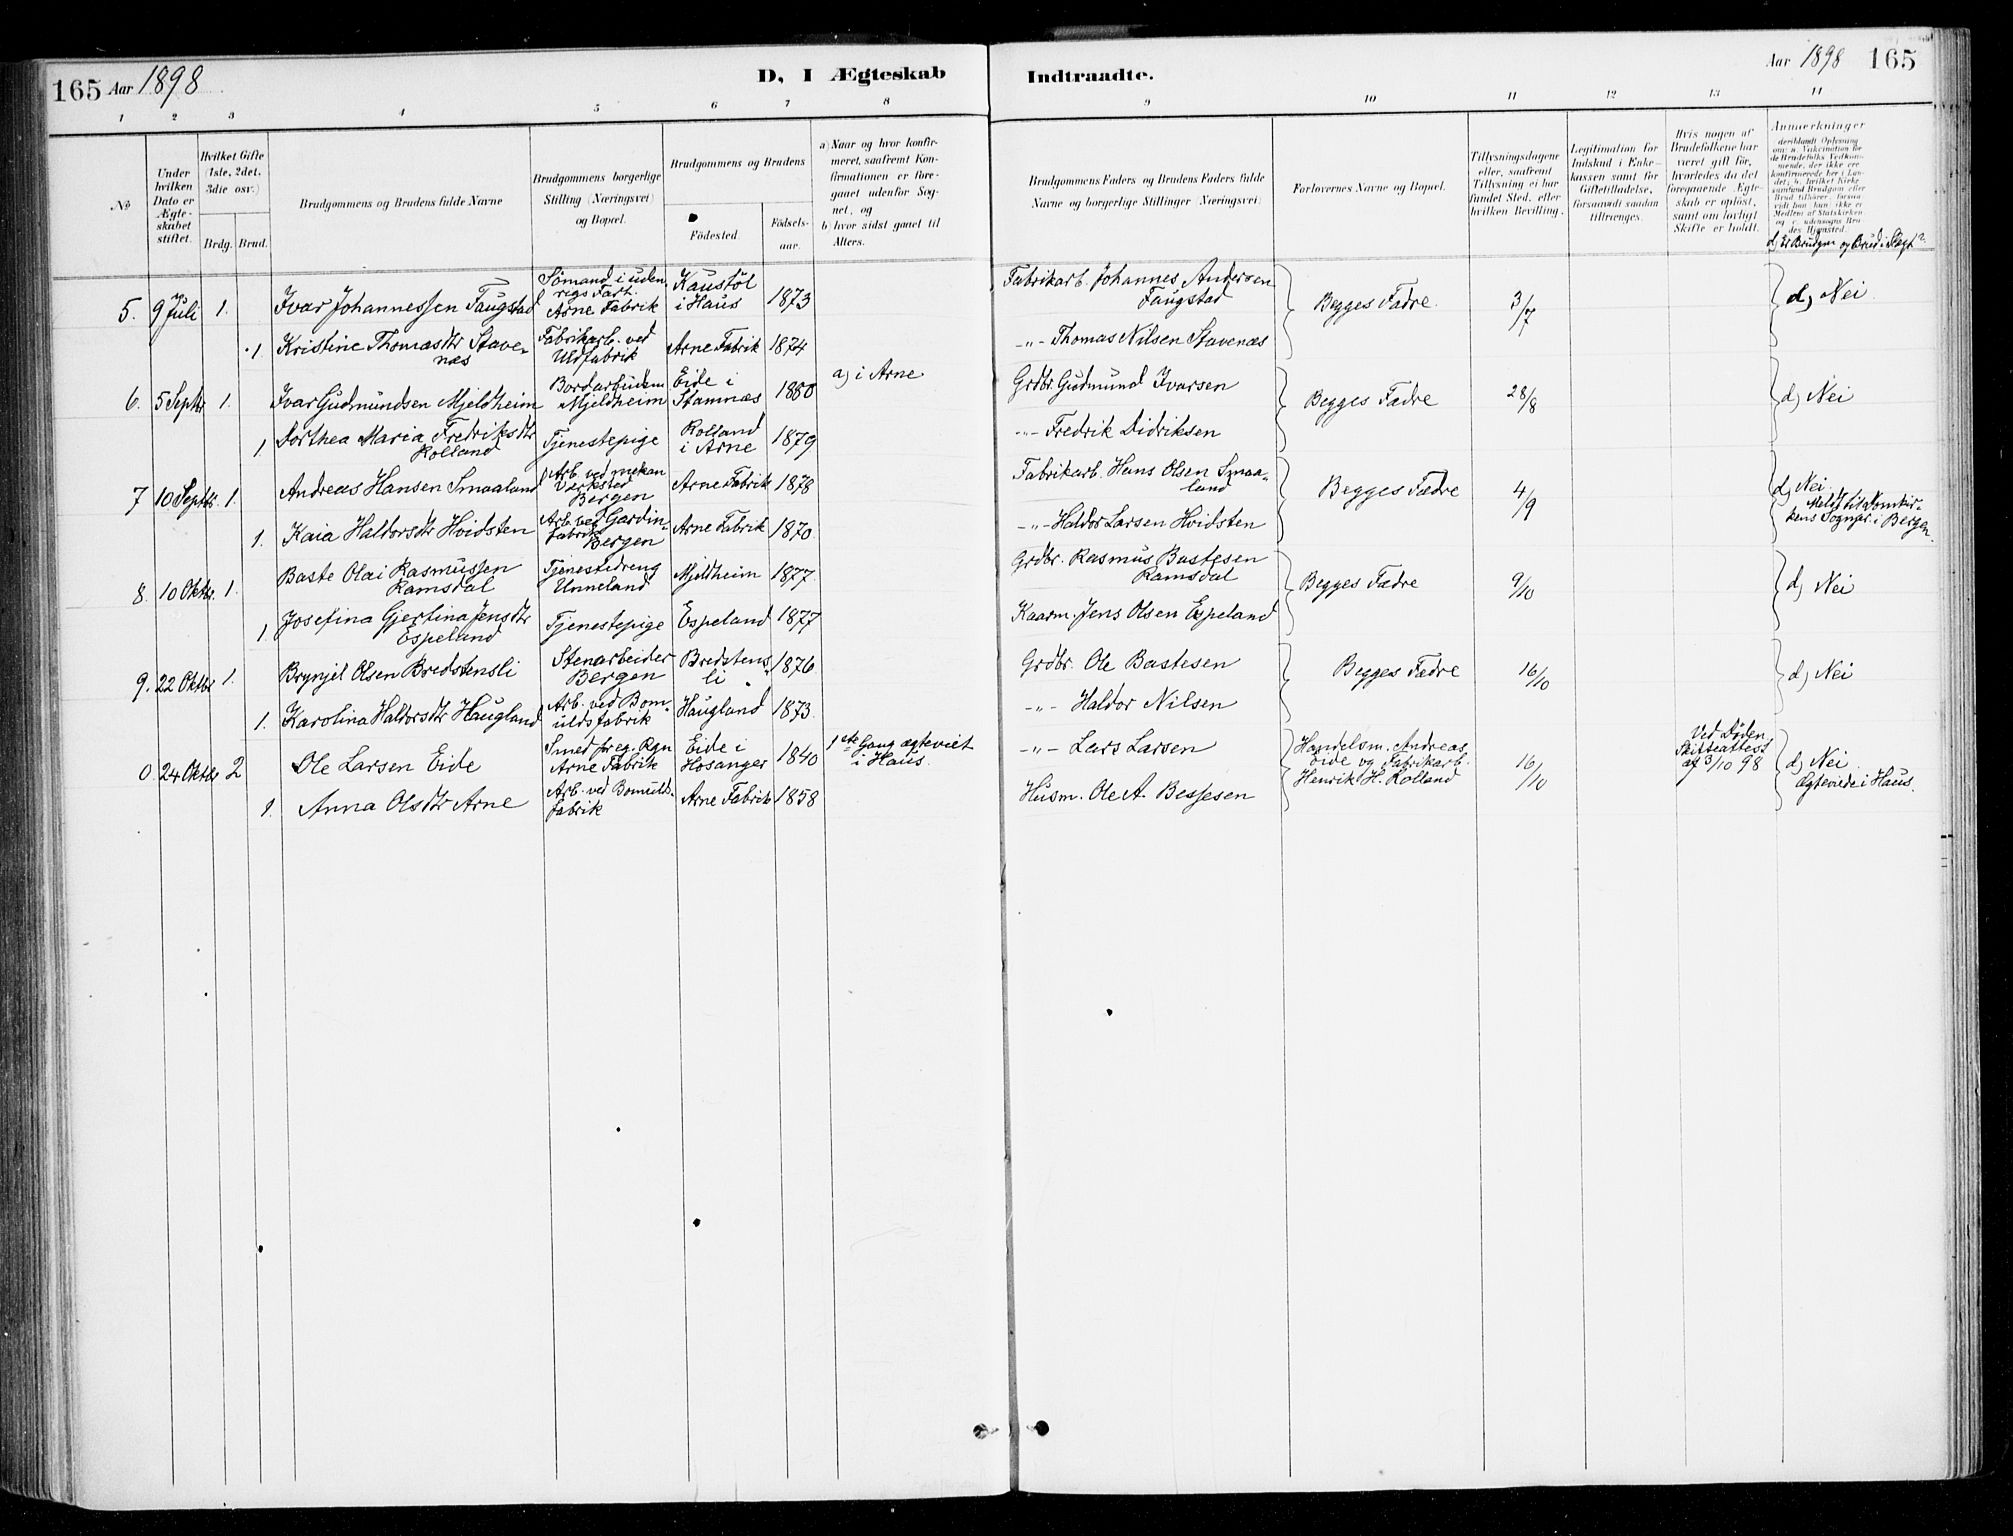 165 Aar 1898
D, I Ægteskab
Indtraadte.
Aar 1898 165
1 2 3 4 5 6 7 8 9 10 11 12 13 14
No
Under hvilken Dato er Ægteskabet stiftet.
Hvilket Gifte (1ste, 2det, 3die osv.)
Brdg. Brud.
Brudgommens og Brudens fulde Navne
Brudgommens borgerlige Stilling (Næringsvei) og Bopæl.
Brudgommens og Brudens
Födested.
Födselsaar.
a) Naar og hvor konfirmeret, saafremt Konfirmationen er foregaaet udenfor Sognet, og
b) hvor sidst gaaet til Alters.
Brudgommens Faders og Brudens Faders fulde Navne og borgerlige Stillinger (Næringsvei)
Forlovernes Navne og Bopæl.
Tillysningsdagene eller, saafremt Tillysning ei har fundet Sted, efter hvilken Bevilling.
Legitimation for Indskud i Enkekassen samt for Giftetilladelse, forsaavidt saadan tiltrænges.
Hvis nogen af Brudefolkene har været gift før, hvorledes da det foregaaende Ægteskab er oplöst, samt om lovligt Skifte er holdt.
Anmerkninger
d) Er Brudgm og Brud i Slegt?
5. 9 Juli 1. Ivar Johannessen Faugstad Sömand i udenrigs Fart. Arne Fabrik Kaustöl i Haus 1873 Fabrikarb. Johannes Andersen Faugstad Begges Fædre. 3/7 d) Nei.
1 Kristine Thomasdtr Stavenæs Fabrikarb. ved Uldfabrik Arne Fabrik 1874 -"- Thomas Nilsen Stavenæs
6. 5 Septbr 1. Ivar Gudmundsen Mjeldheim Bordarbeidsm Mjeldheim Eide i Stamnæs 1880 a) i Arne Grdbr. Gudmund Ivarsen Begges Fædre 28/8 d) Nei
1 Dorthea Maria Fredriksdtr Rolland Tjenestepige Rolland i Arne 1879 -"- Fredrik Didriksen
7 10 Septbr. 1. Andreas Hansen Smaaland Arb. ved mekan Værksted Bergen Arne Fabrik 1878 Fabrikarb. Hans Olsen Smaaland Begges Fædre 4/9 d) Nei. Meldt til Domkirkens Sognepr. i Bergen.
1. Kaia Haldorsdtr Hvidsten Arb. ved Gardinfabrik Bergen Arne Fabrik 1870 -"- Haldor Larsen Hvidsten
8. 10 Oktbr. 1. Baste Olai Rasmussen Ramsdal Tjenestedreng Unneland Mjeldheim 1877. Grdbr. Rasmus Bastesen Ramsdal Begges Fædre 9/10 d) Nei
1. Josefina Gjertina Jensdtr Espeland Tjenestepige Espeland 1877 Kaarm. Jens Olsen Espeland
9. 22 Oktbr 1. Brynjel Olsen Bredstensli Stenarbeider Bergen Bredstensli 1876 Grdbr. Ole Bastesen Begges Fædre 16/10 d) Nei
1. Karolina Haldorsdtr Haugland Arb. ved Bomuldsfabrik Haugland 1873. -"- Haldor Nilsen
0 24 Oktbr 2 Ole Larsen Eide Smed for eg. Rgn Arne Fabrik Eide i Hosanger 1840 1ste Gang ægteviet i Haus. -"- Lars Larsen Handelsm. Andreas Eide og Fabrikarb. Henrik H. Rolland 16/10 Ved Döden Skifteattest af 3/10 98 d) Nei Ægteviede i Haus.
1. Anna Olsdtr Arne Arb. ved Bomuldsfabrik Arne Fabrik 1858 Husm. Ole A. Bessesen